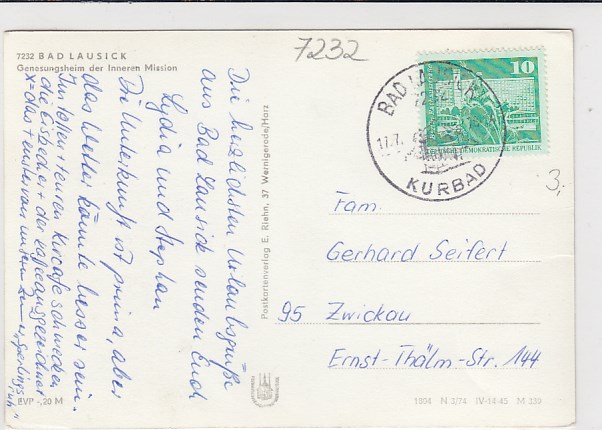 7232 BAD LAUSICK
Genesungsheim der Inneren Mission
7232
Die herzlichsten Urlaubsgrüße
aus Bad Lausick senden Euch
Lydia und Stephan
Die Unterkunft ist prima, aber
das Wetter könnte besser sein.
Im tollen + teuren Kurcafe schmecken
die Eisbecher + der Kaffee ausgezeichnet
x = das Fenster von unserem
EVP -,20 M
Postkartenverlag E. Riehn, 37 Wernigerode/Harz
BAD LAUSICK
7232
17.7.
KURBAD
10
DEUTSCHE DEMOKRATISCHE REPUBLIK
3,-
Fam.
Gerhard Seifert
95 Zwickau
Ernst-Thälm-Str. 144
1304 N 3/74 IV-14-45 M 339